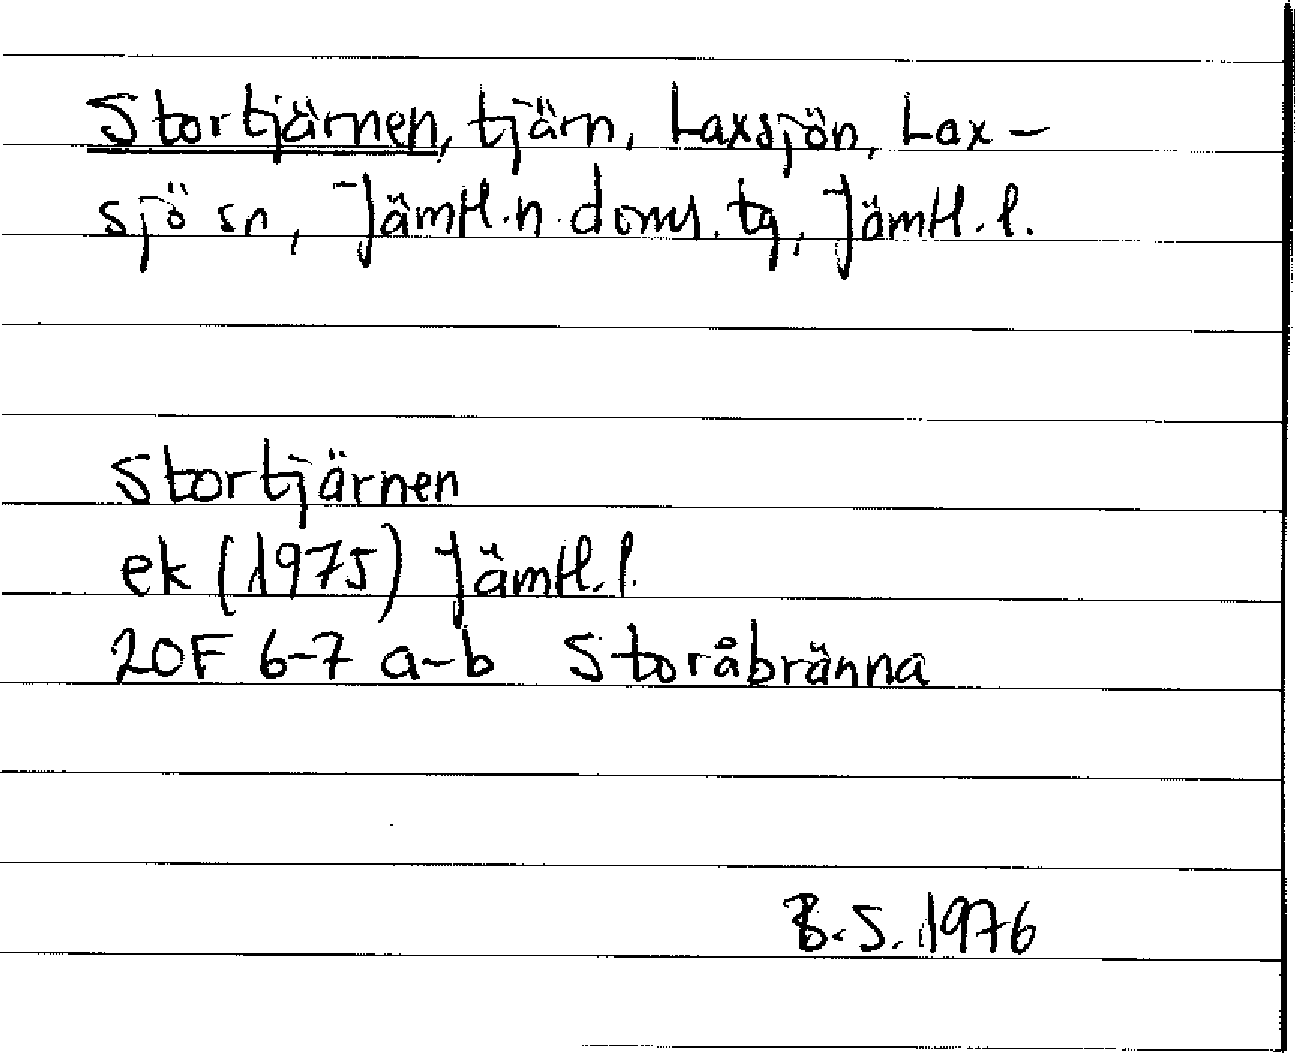 Stortjärnen, tjärn, Laxsjön, Lax-
sjö sn, Jämtl.n.doms.tg, Jämtl.l.
Stortjärnen
ek (1975) Jämtl.l.
20F 6-7 a-b Storåbränna
B.S. 1976